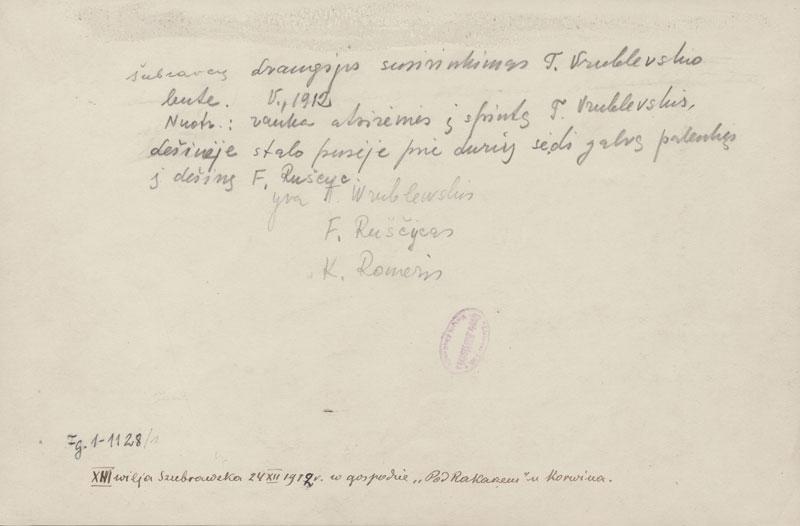 šubravcų draugijos susirinkimas T. Vrublevskio
bute. V., 1912
Nuotr.: ranka atsirėmęs į spintą T. Vrublevskis,
dešinėje stalo pusėje prie durų sėdi galvą palenkęs
į dešinę F. Ruščyc
yra T. Wrublewskis
F. Ruščycas
K. Romeris
Fg. 1-1128/1
XIII wilja Szubrawska 24 XII 1912 r. w gospodzie „Pod Rakarzem" u Korwina.